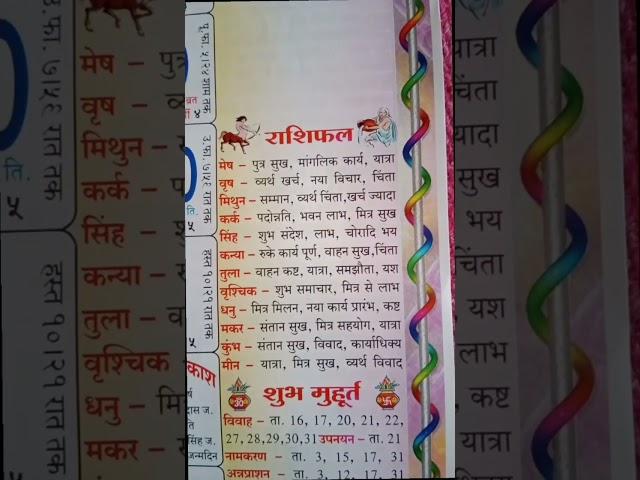 राशिफल
मेष – पुत्र सुख, मांगलिक कार्य, यात्रा
वृष – व्यर्थ खर्च, नया विचार, चिंता
मिथुन – सम्मान, व्यर्थ चिंता,खर्च ज्यादा
कर्क – पदोन्नति, भवन लाभ, मित्र सुख
सिंह – शुभ संदेश, लाभ, चोरादि भय
कन्या – रुके कार्य पूर्ण, वाहन सुख,चिंता
तुला – वाहन कष्ट, यात्रा, समझौता, यश
वृश्चिक – शुभ समाचार, मित्र से लाभ
धनु – मित्र मिलन, नया कार्य प्रारंभ, कष्ट
मकर – संतान सुख, मित्र सहयोग, यात्रा
कुंभ – संतान सुख, विवाद, कार्याधिक्य
मीन – यात्रा, मित्र सुख, व्यर्थ विवाद
शुभ मुहूर्त
विवाह – ता. 16, 17, 20, 21, 22,
27, 28,29,30,31 उपनयन – ता. 21
नामकरण – ता. 3, 15, 17, 31
अन्नप्राशन – ता. 3, 12, 17, 31
पू.फा. ५।२४ शाम तक
उ.फा. ७।५६ रात तक
हस्त १०।२१ रात तक